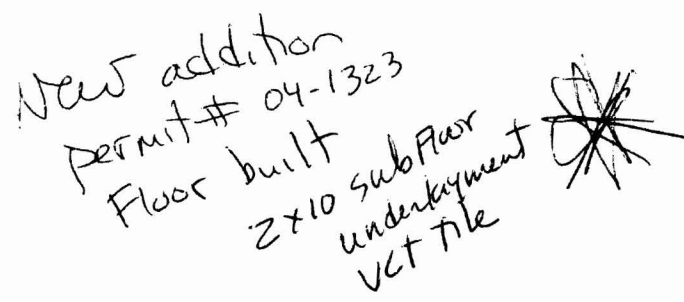 New addition
permit # 04-1323
Floor built
2x10 subfloor
underlayment
VCT tile